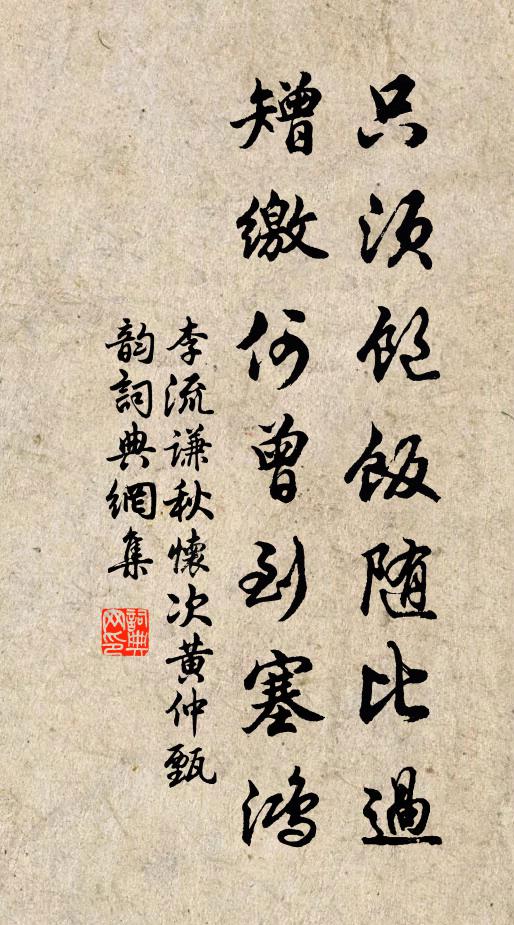 只须饱饭随比过
矰缴何曾到塞鸿
李流谦秋懷次黄仲甄
韵詞典網集
詞典
网印